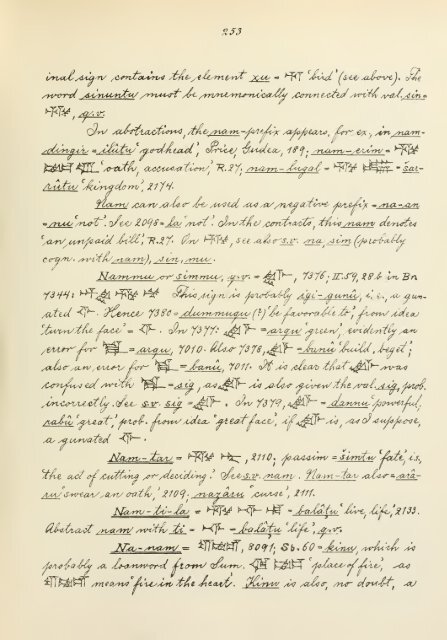 253
inal sign contains the element xu = 𒄷 'bird' (see above). The
word sinuntu must be mnemonically connected with val. sin =
, q.v.
In abstractions, the nam-prefix appears, for ex., in nam-
dingir = ilûtu 'godhead', Price, Gudea, 189; nam-erim =
'oath, accusation', R.27; nam-lugal = = šar-
rûtu 'kingdom', 2174.
Nam can also be used as a negative prefix = na-an
= nu 'not'. See 2098 = la 'not'. In the contracts, this nam denotes
'an unpaid bill', R.27. On , see also s.v. na, sim (probably
cogn. with nam), sin, mu.
Nammu or simmu, q.v. = , 7376; II.59, 28.b in Br
7344: This sign is probably igi-gunû, i.e., a gun-
ated . Hence 7380 = dummuqu (?) 'be favorable to', from idea
'turn the face' = . In 7377: = arqu 'green', evidently an
error for = arqu, 7010. Also 7378, = banû 'build, beget';
also an error for = banû, 7011. It is clear that was
confused with = sig, as is also given the val. sig, prob.
incorrectly. See s.v. sig = . In 7379, = dannu 'powerful,
rabû 'great', prob. from idea 'great face', if is, as I suppose,
a gunated .
Nam-tar = , 2110; passim = šimtu 'fate', i.e.
the act of cutting or deciding.' See s.v. nam. Nam-tar also = arâ-
ru 'swear an oath', 2109; nazâru 'curse', 2111.
Nam-ti-la = = balâṭu 'live, life', 2133.
Abstract nam with ti = = balâṭu 'life', q.v.
Na-nam = , 8091; Sb. 60 = kinu, which is
probably a loanword from Sum. 'place of fire', as
means 'fire in the heart. Kinu is also, no doubt, a